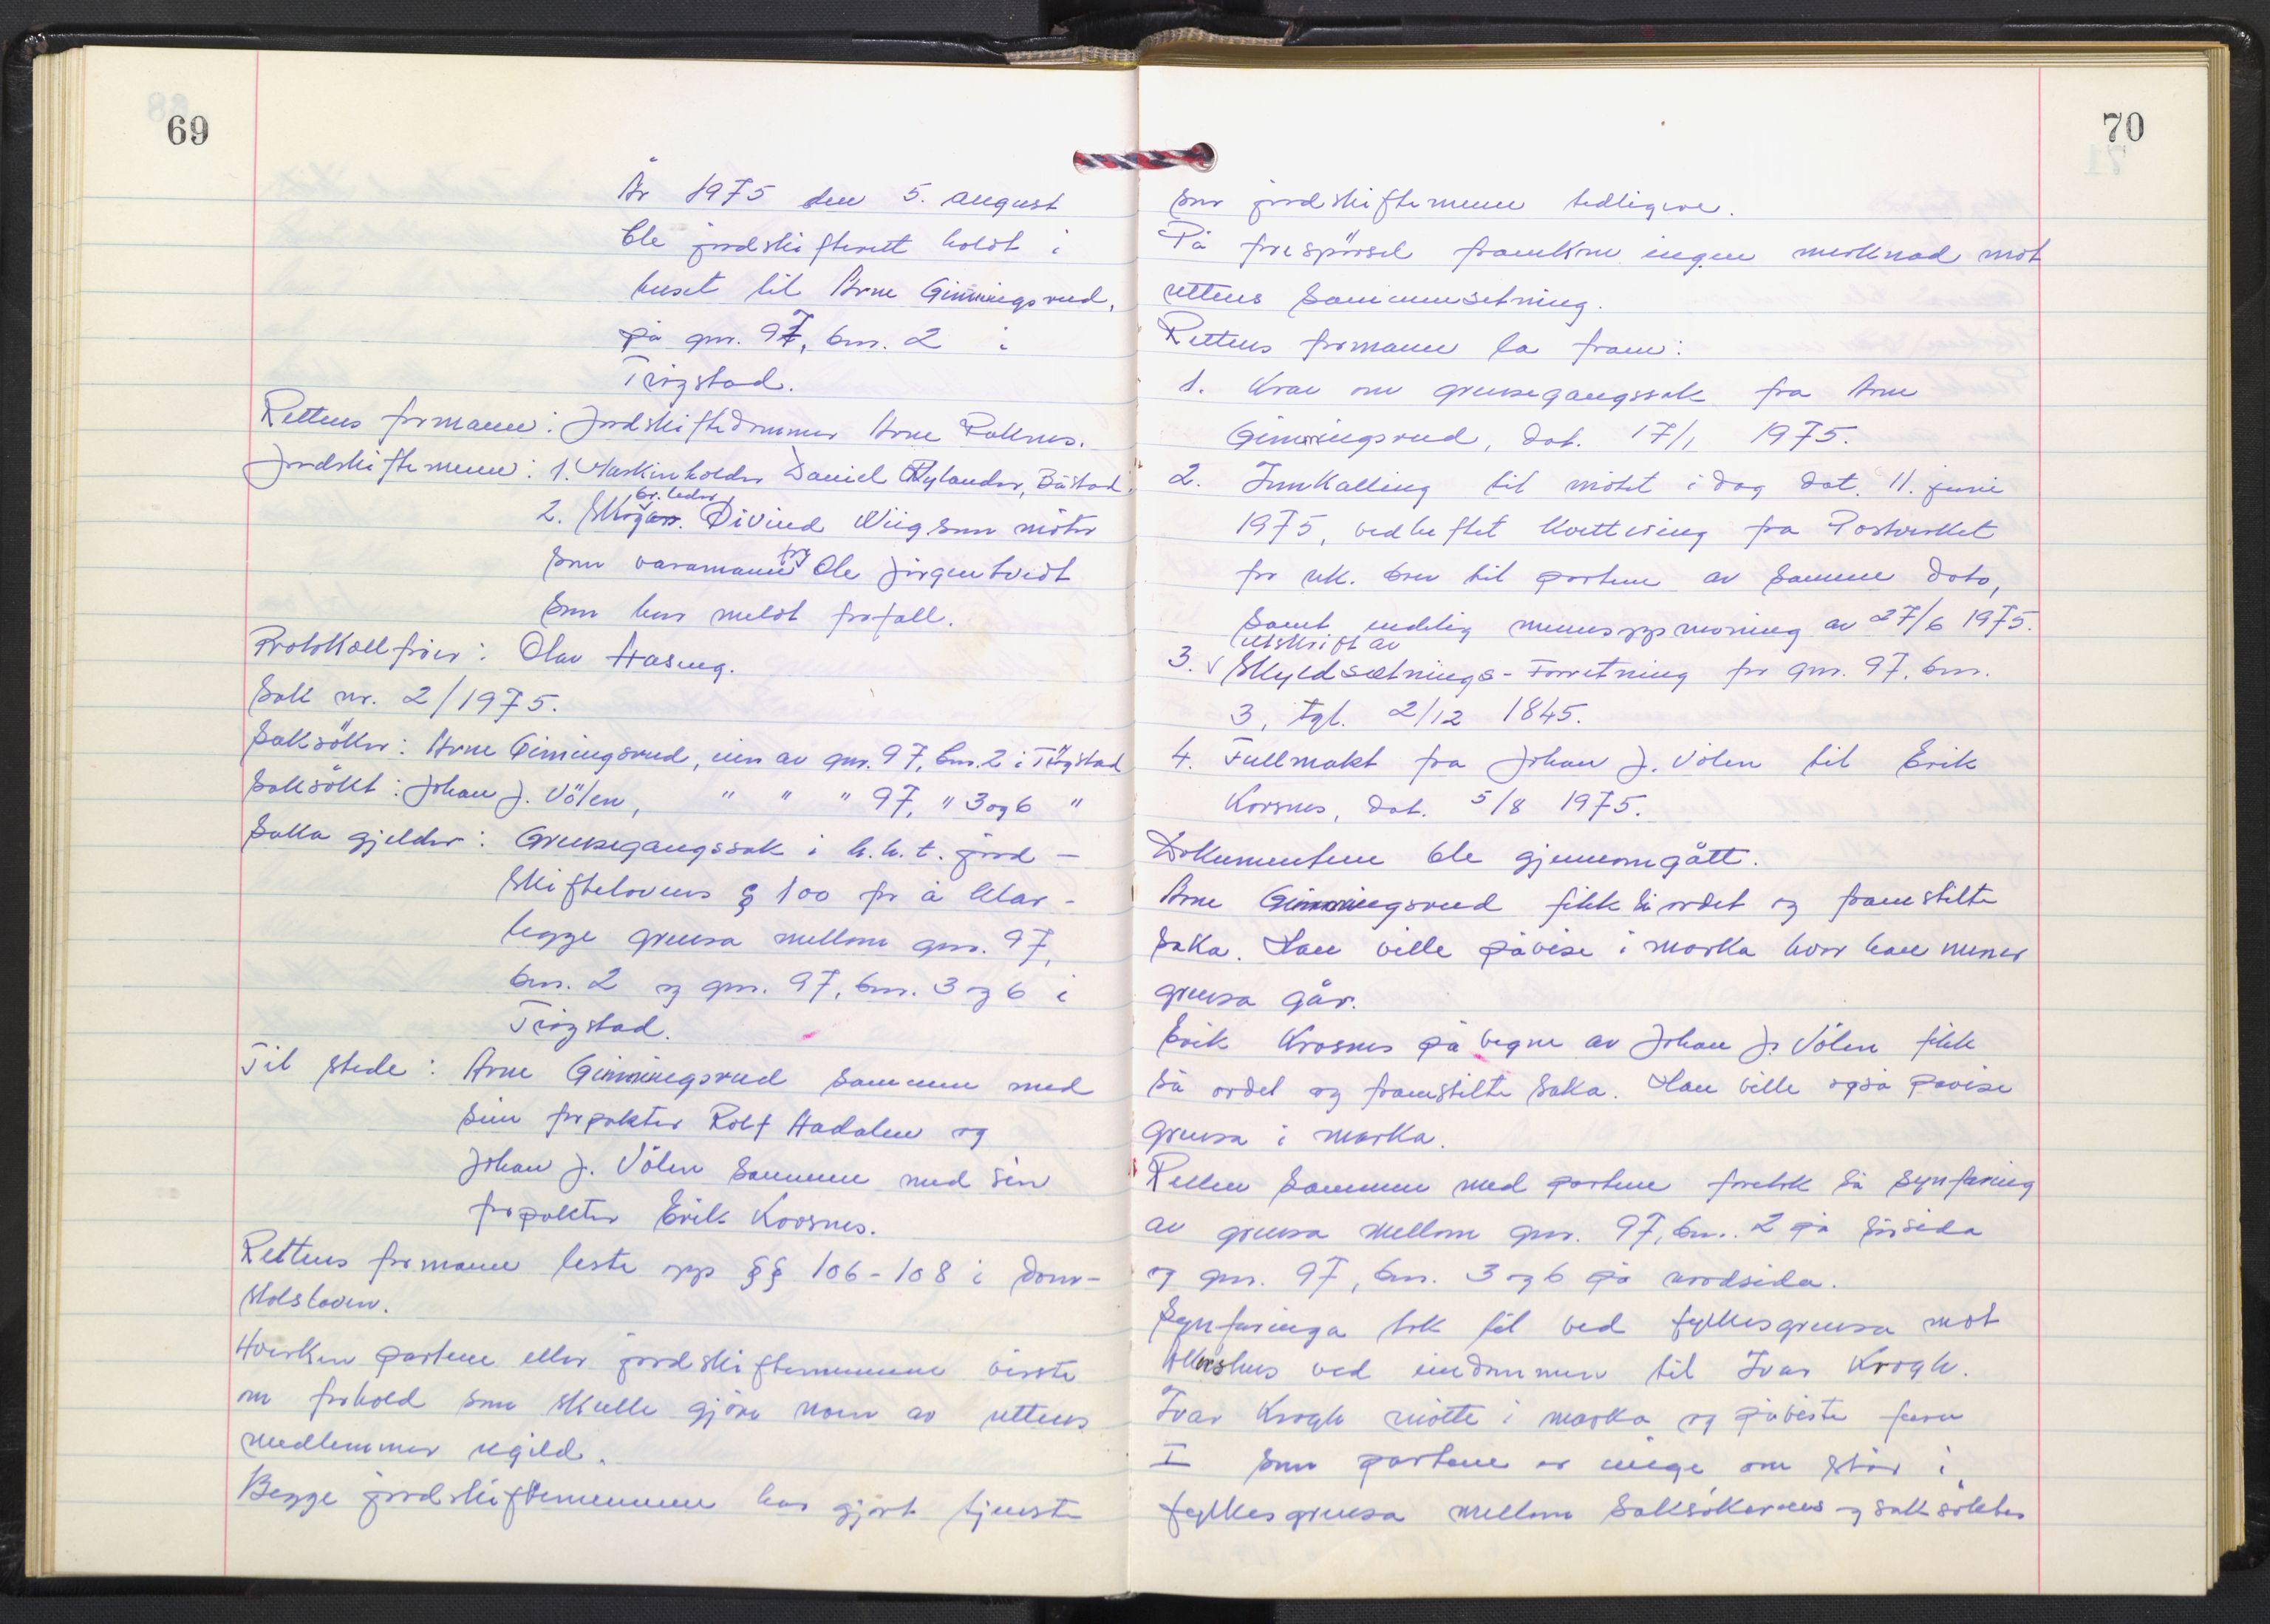 69
År 1975 den 5. august
ble jordskifterett holdt i
huset til Arne Gimmingsrud,
på gnr. 97, bnr. 2 i
Trögstad.
Rettens formann: Jordskiftedommer Arne
Jordskiftemenn: 1. Maskinholder Daniel Rylander, Båstad.
2. br. leder Öivind Wiig som möter
som varamann for Ole Jörgentvedt
som har meldt forfall.
Protokollförer: Olav Haseng.
Sak nr. 2/1975.
Saksöker: Arne Gimmingsrud, eier av gnr. 97, bnr. 2 i Trögstad
Saksökt: Johan J. Völen, " " " 97, " 3 og 6 "
Saka gjelder: Grensegangssak i h.h.t. jord-
skiftelovens § 100 for å klar-
legge grensa mellom gnr. 97,
bnr. 2 og gnr. 97, bnr. 3 og 6 i
Trögstad.
Til stede: Arne Gimmingsrud sammen med
sin forpakter Rolf Hadalen og
Johan J. Völen sammen med sin
forpakter Erik Korsnes.
Rettens formann leste opp §§ 106-108 i dom-
stolsloven.
Hverken partene eller jordskiftemennene visste
om forhold som skulle gjöre noen av rettens
medlemmer ugild.
Begge jordskiftemennene har gjort tjeneste
70
som jordskiftemenn tidligere.
På forespörsel framkom ingen merknad mot
rettens sammensetning.
Rettens formann la fram:
1. Krav om grensegangssak fra Arne
Gimmingsrud, dat. 17/1 1975.
2. Innkalling til mötet i dag dat. 11. juni
1975, vedheftet kvittering fra Postverket
for rek. brev til partene av samme dato,
samt endelig mennoppnevning av 27/6 1975.
utskrift av
3. Skyldsætnings-Forretning for gnr. 97, bnr.
3, tgl. 2/12 1845.
4. Fullmakt fra Johan J. Völen til Erik
Korsnes, dat. 5/8 1975.
Dokumentene ble gjennomgått.
Arne Gimmingsrud fikk så ordet og framstilte
saka. Han ville påvise i marka hvor han mener
grensa går.
Erik Krosnes på vegne av Johan J. Völen fikk
så ordet og framstilte saka. Han ville også påvise
grensa i marka.
Retten sammen med partene foretok så synfaring
av grensa mellom gnr. 97, bnr. 2 på sörsida
og gnr. 97, bnr. 3 og 6 på nordsida.
Synfaringa tok til ved fylkesgrensa mot
Akershus ved eindommen til Ivar Krogh.
Ivar Krogh mötte i marka og påviste furu
I som partene er enige om står i
fylkesgrensa mellom saksökerens og saksöktes